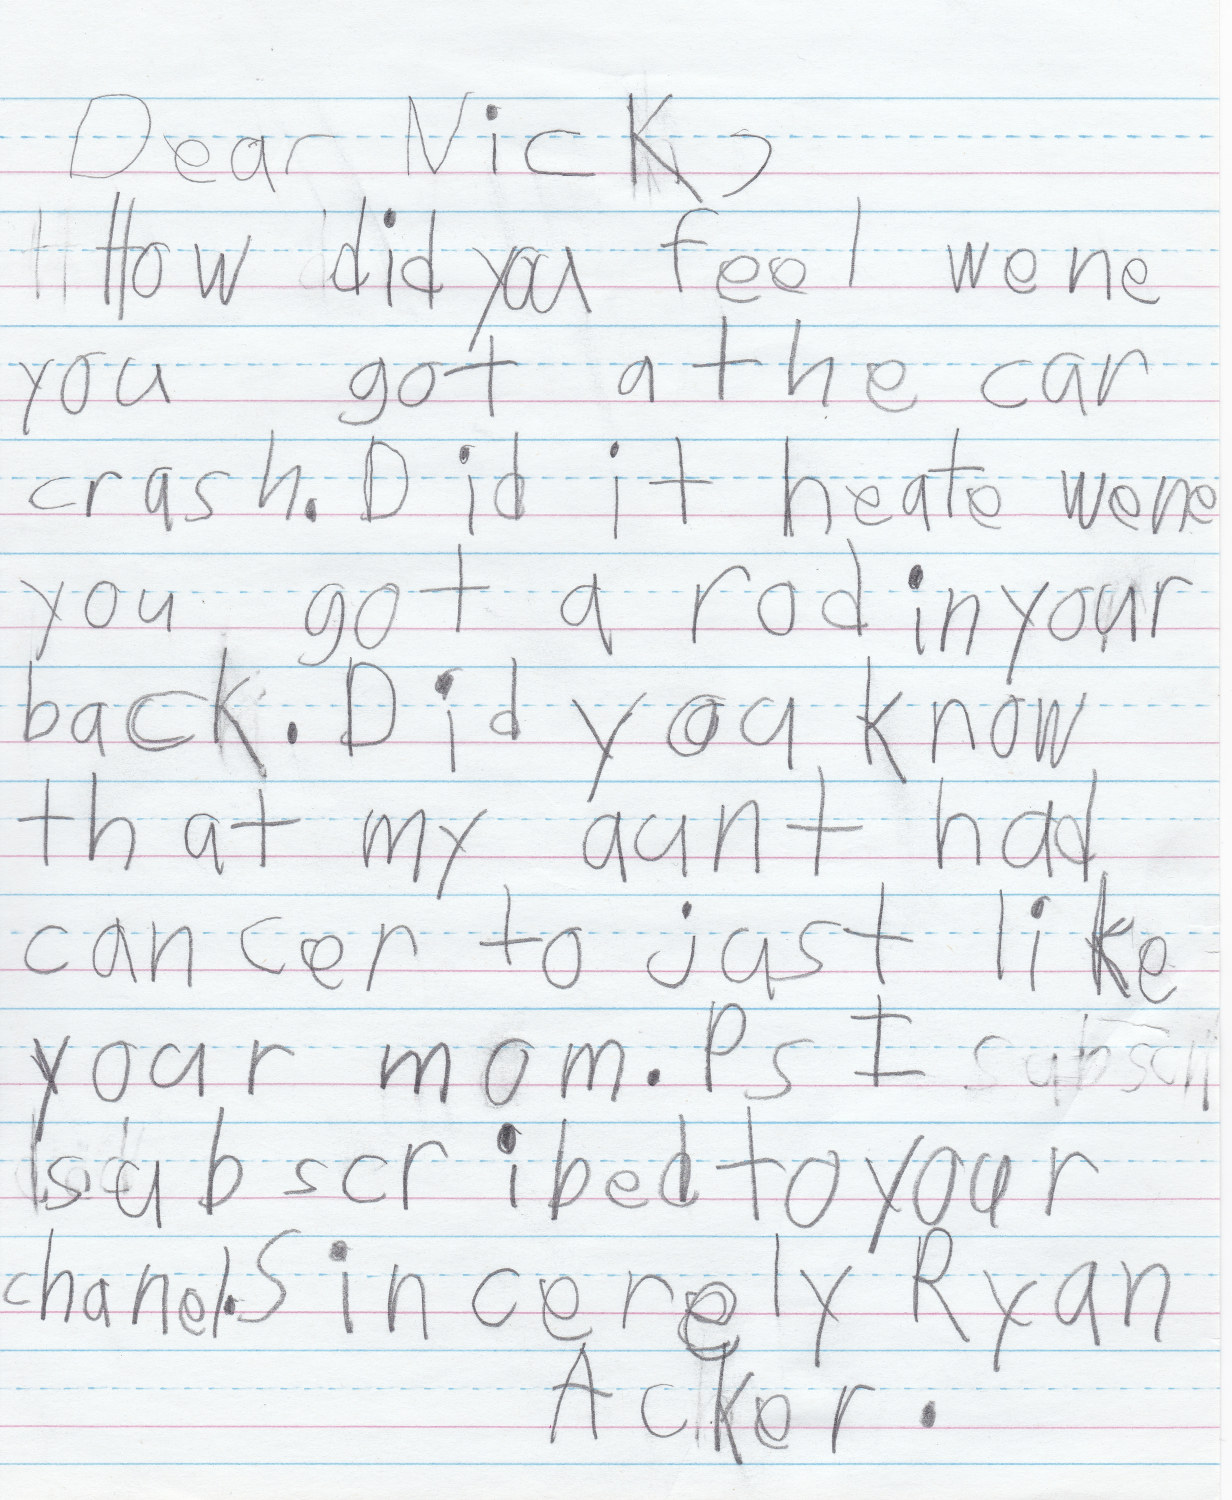 Dear Nick,
How did you feel wene
you got a the car
crash. Did it heate wene
you got a rod in your
back. Did you know
that my aunt had
cancer to just like
your mom. Ps I
subscribed to your
chanel. Sincerely Ryan
Acker.